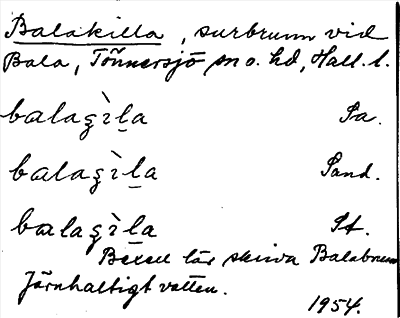 Balakilla, surbrunn vid
Bala, Tönnersjö sn o. hd, Hall. l.
balaʒìla Pa.
balaʒìla Sand.
balaʒìla St.
Bexell lär skriva Balabrunn
Järnhaltigt vatten.
1954.